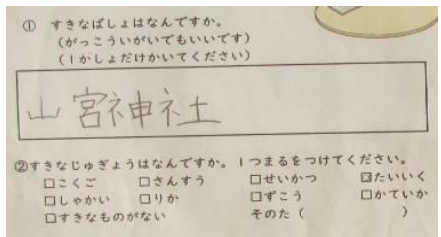 ① すきなばしょはなんですか。
(がっこういがいでもいいです)
(1かしょだけかいてください)
山宮神社
②すきなじゅぎょうはなんですか。1つまるをつけてください。
□こくご □さんすう □せいかつ ☒たいいく
□しゃかい □りか □ずこう □かていか
□すきなものがない そのた( )